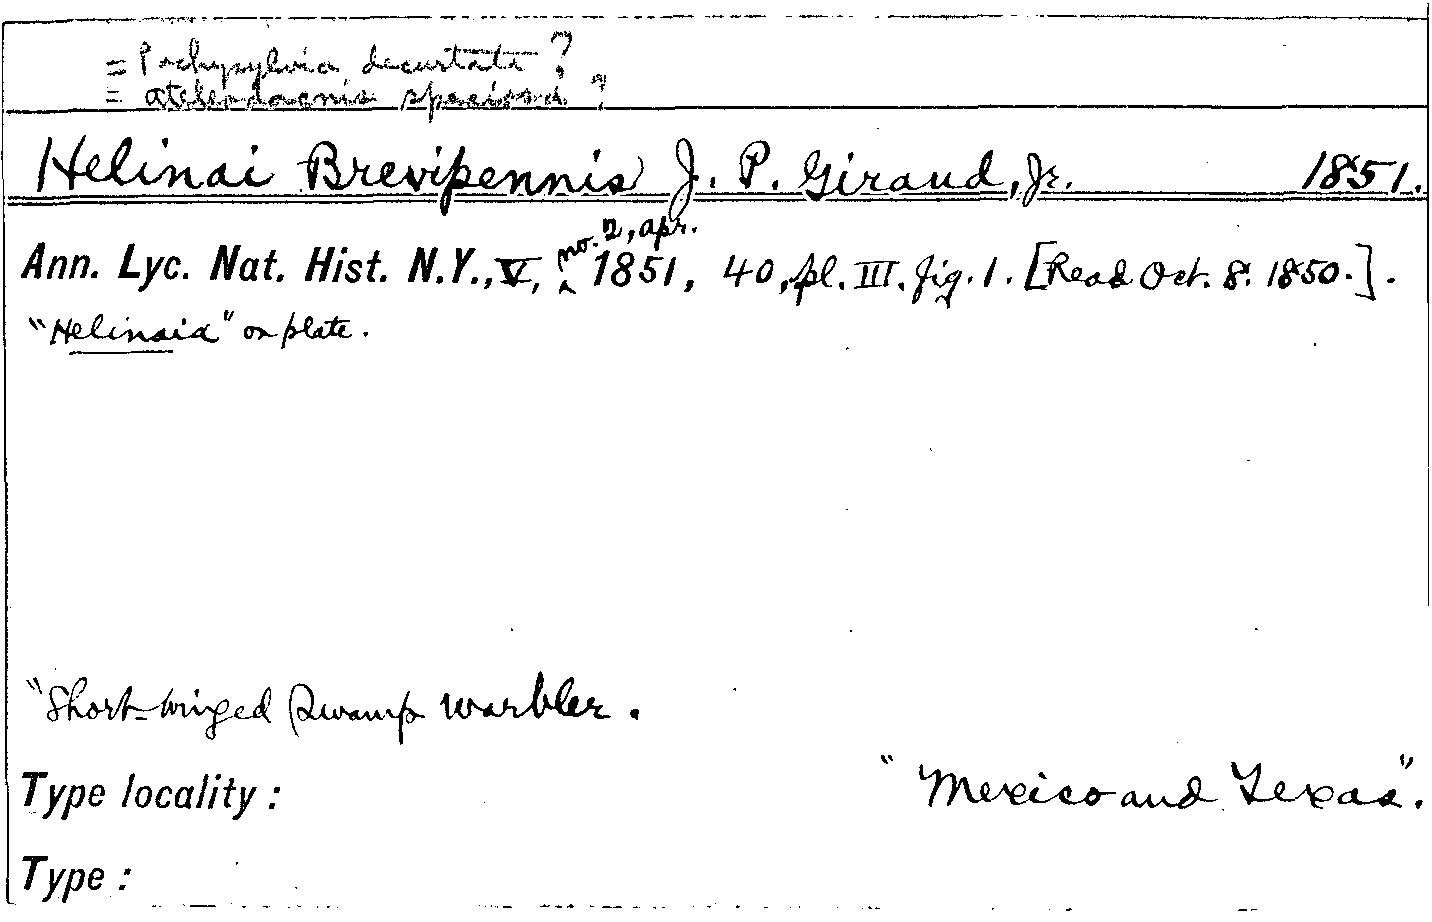 = Pachysylvia decurtata?
= Ateleodacnis speciosa?
Helinai Brevipennis J. P. Giraud, Jr. 1851.
no. 2, apr.
Ann. Lyc. Nat. Hist. N.Y., V, ‸ 1851, 40, pl. III. fig. 1. [Read Oct. 8. 1850.].
"Helinaia" on plate.
"Short-winged Swamp Warbler.
Type locality: "Mexico and Texas".
Type: